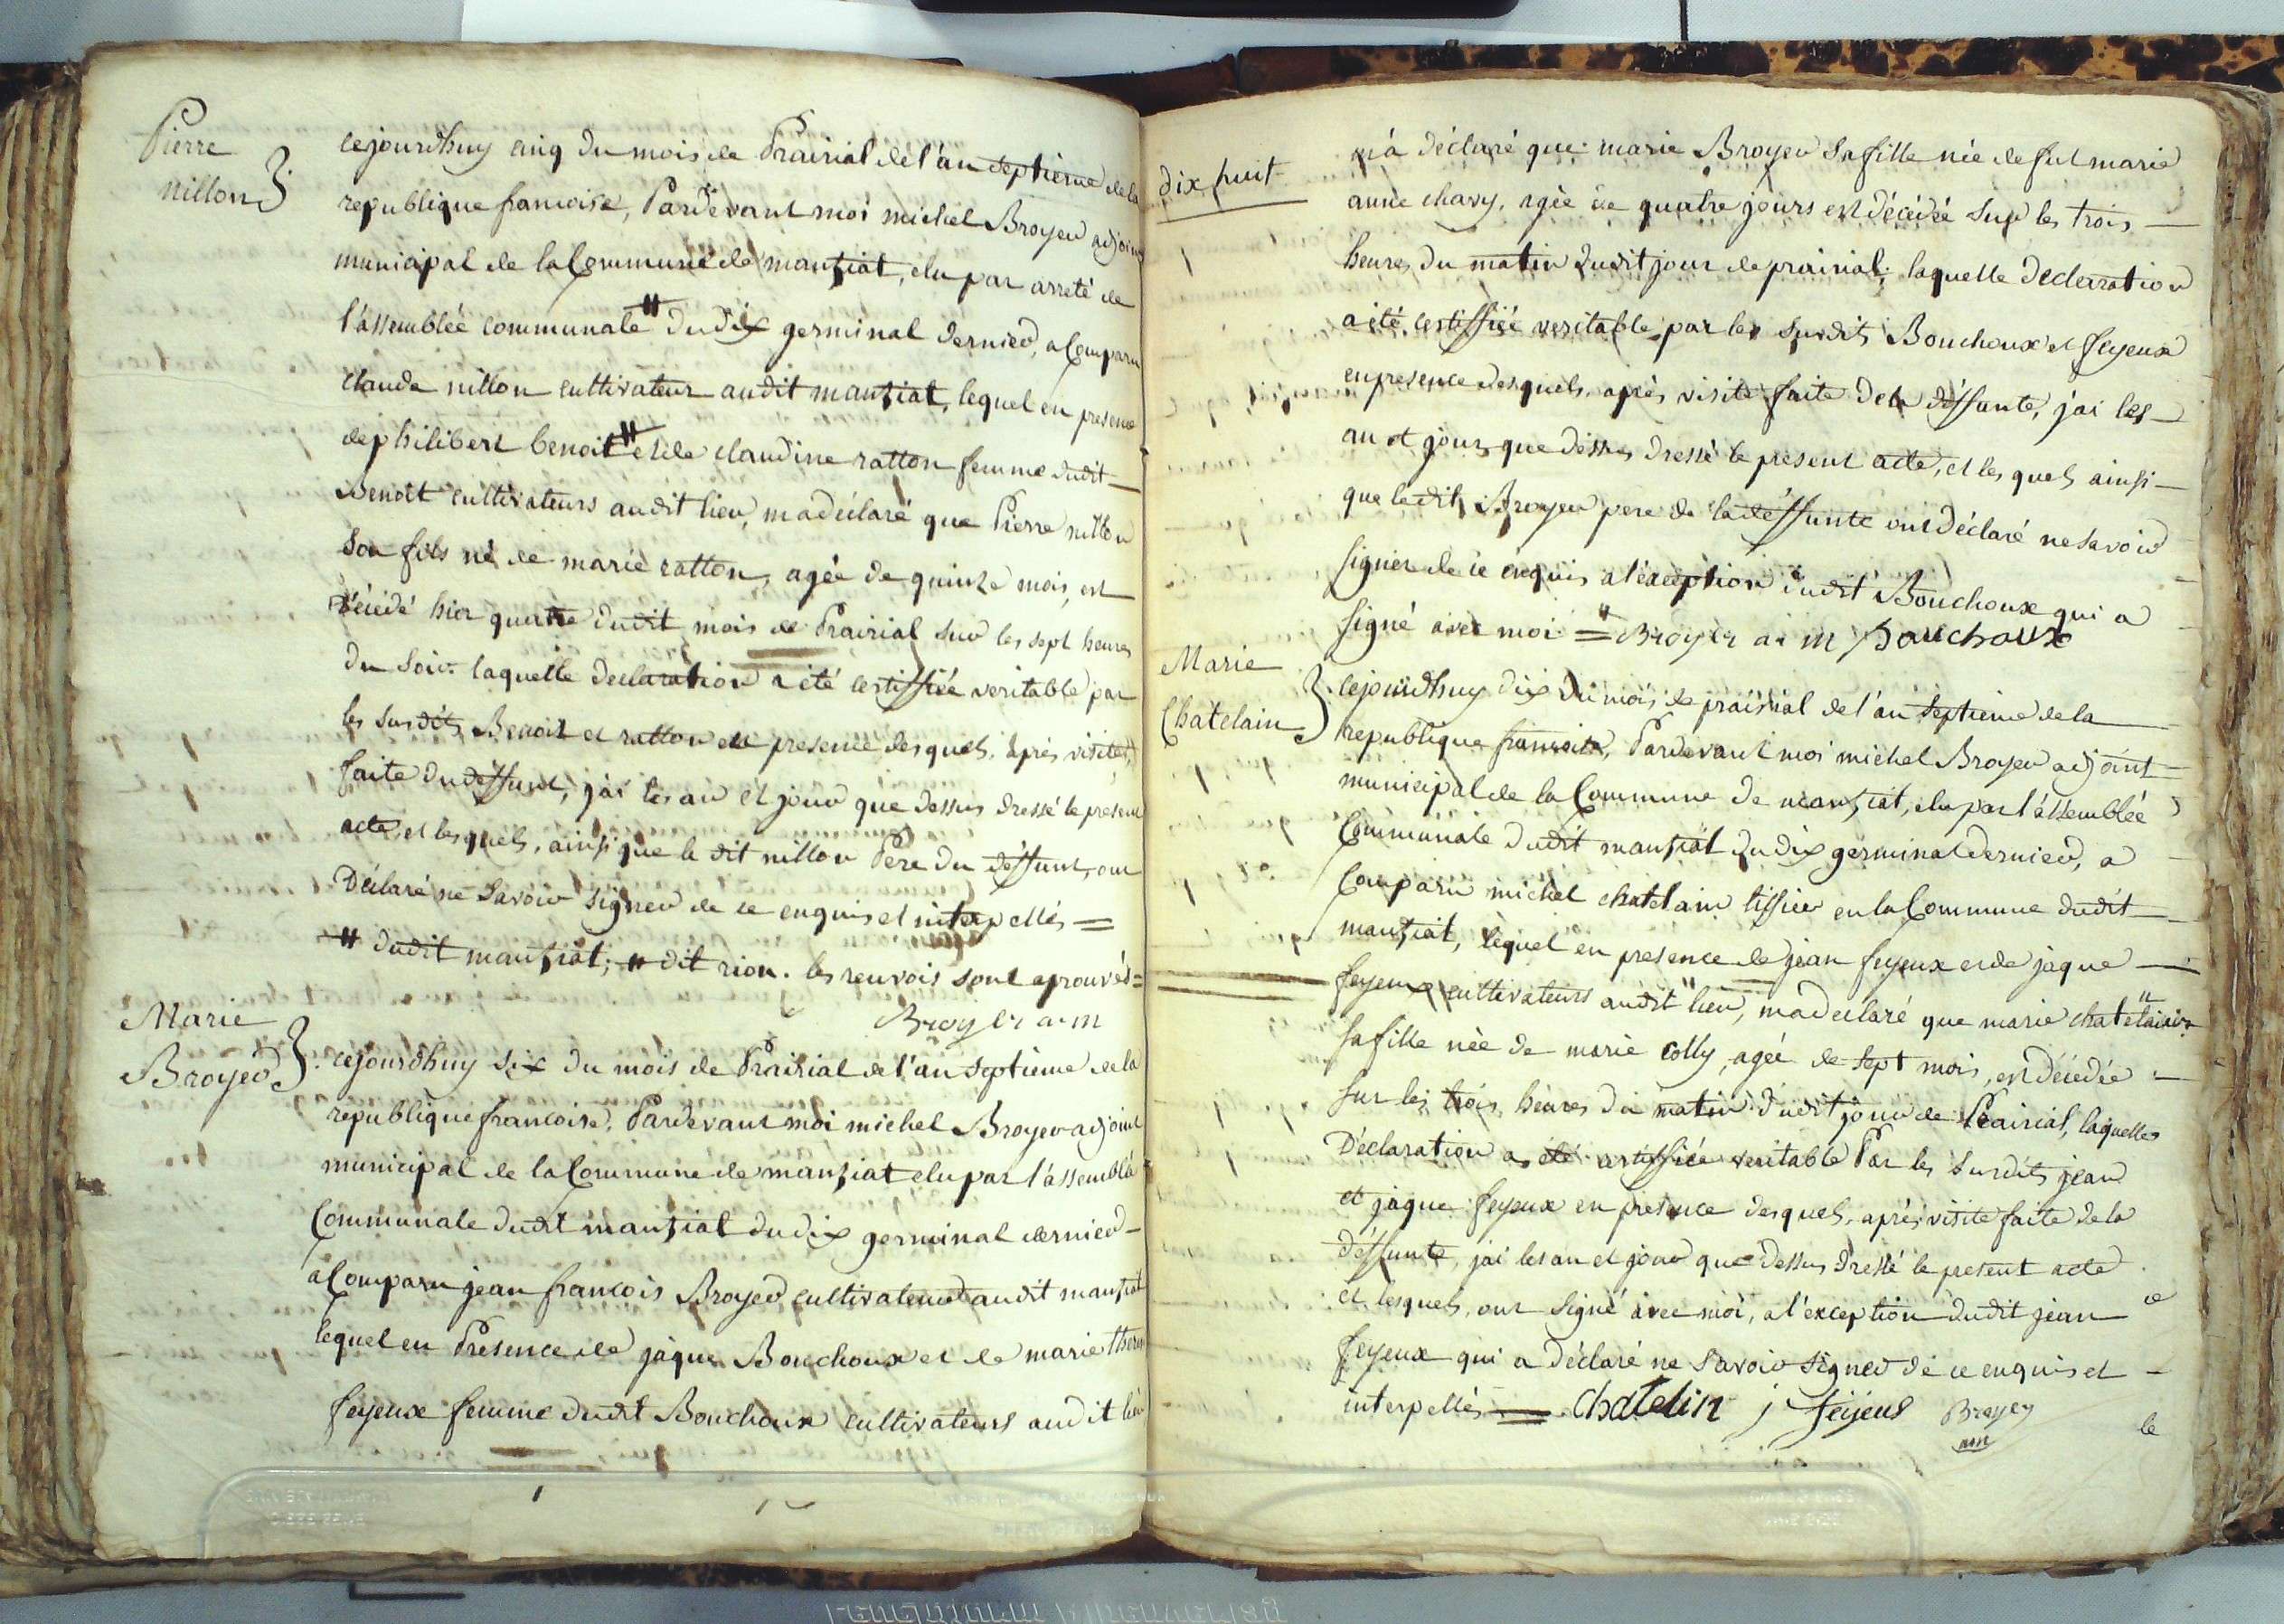 Pierre
nillon
cejourdhuy cinq du mois de Prairial de l'an septieme de la
republique francoise, Pardevant moi michel Broyer adjoint
municipal de la Commune de mantziat, elu par arreté de
l'assemblée communale " du dix germinal dernier, a Comparu
claude nillon cultivateur audit mantziat, lequel en presence
de philibert benoit " et de claudine ratton femme dudit
Benoit cultivateurs audit lieu, m'a déclaré que Pierre nillon
son fils né de marie ratton, agée de quinze mois, est
décédé hier quatre dudit mois de Prairial sur les sept heures
du soir. laquelle declaration a été certiffiée veritable par
les susdits Benoit et ratton en presence desquels, après visite
faite du déffunt, j'ai les an et jour que dessus dressé le present
acte, et lesquels, ainsi que le dit nillon Pere du déffunt, ont
Déclaré ne savoir signer de ce enquis et interpellés =
" dudit mantziat; " dit rion. les renvois sont aprouvés =
Broyer a m
Marie
Broyer
cejourdhuy six du mois de Prairial de l'an septième de la
republique francoise, Pardevant moi michel Broyer adjoint
municipal de la Commune de mantziat elu par l'assemblée
Communale dudit mantziat du dix germinal dernier
a Comparu jean francois Broyer cultivateur audit mantziat
lequel en Presence de jaque Bouchoux et de marie therese
feyeux femme dudit Bouchoux cultivateurs audit lieu
dix huit
m'a déclaré que marie Broyer sa fille née de fut marie
anne chavy, agée de quatre jours est décédée sur les trois
heures du matin dudit jour de prairial; laquelle declaration
a été certiffiée veritable par les susdits Bouchoux et feyeux
en presence desquels, après visite faite de la déffunte, j'ai les
an et jours que dessus dressé le present acte, et lesquels ainsi
que ledit Broyer pere de la déffunte ont déclaré ne savoir
signer de ce enquis a l'exception dudit Bouchoux qui a
signé avec moi = Broyer a m Bouchoux
Marie
Chatelain
cejourdhuy dix du mois de prairial de l'an septieme de la
republique francoise, Pardevant moi michel Broyer adjoint
municipal de la Commune de mantziat, elu par l'assemblée
Communale dudit mantziat du dix germinal dernier, a
Comparu michel chatelain tissier en la Commune dudit
mantziat, lequel en presence de jean feyeux et de jaque
feyeux cultivateurs audit lieu, m'a declaré que marie chatelain
sa fille née de marie colly, agée de sept mois, est décédée
sur les trois heures du matin dudit jour de Prairial, laquelle
Déclaration a été certiffiée veritable Par les susdits jean
et jaque feyeux en presence desquels, après visite faite de la
déffunte, j'ai les an et jour que dessus dressé le present acte
et lesquels, ont signé avec moi, a l'exception dudit jean
feyeux qui a déclaré ne savoir signer de ce enquis et
interpellés = chatelin j feijeus Broyer
am
le